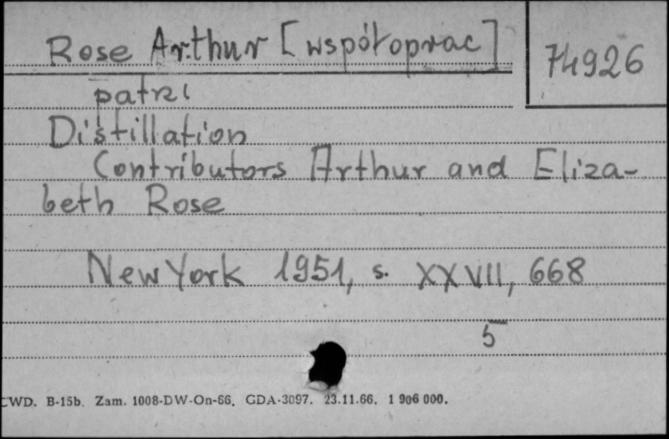 Rose Arthur [współoprac]
74926
patrz
Distillation
Contributors Arthur and Eliza-
beth Rose
New York 1951, s. XXVII, 668
5
CWD. B-15b. Zam. 1008-DW-On-66. GDA-3097. 23.11.66. 1 906 000.